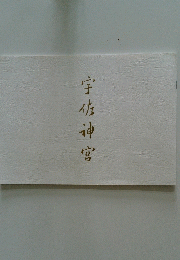 宇佐神宮